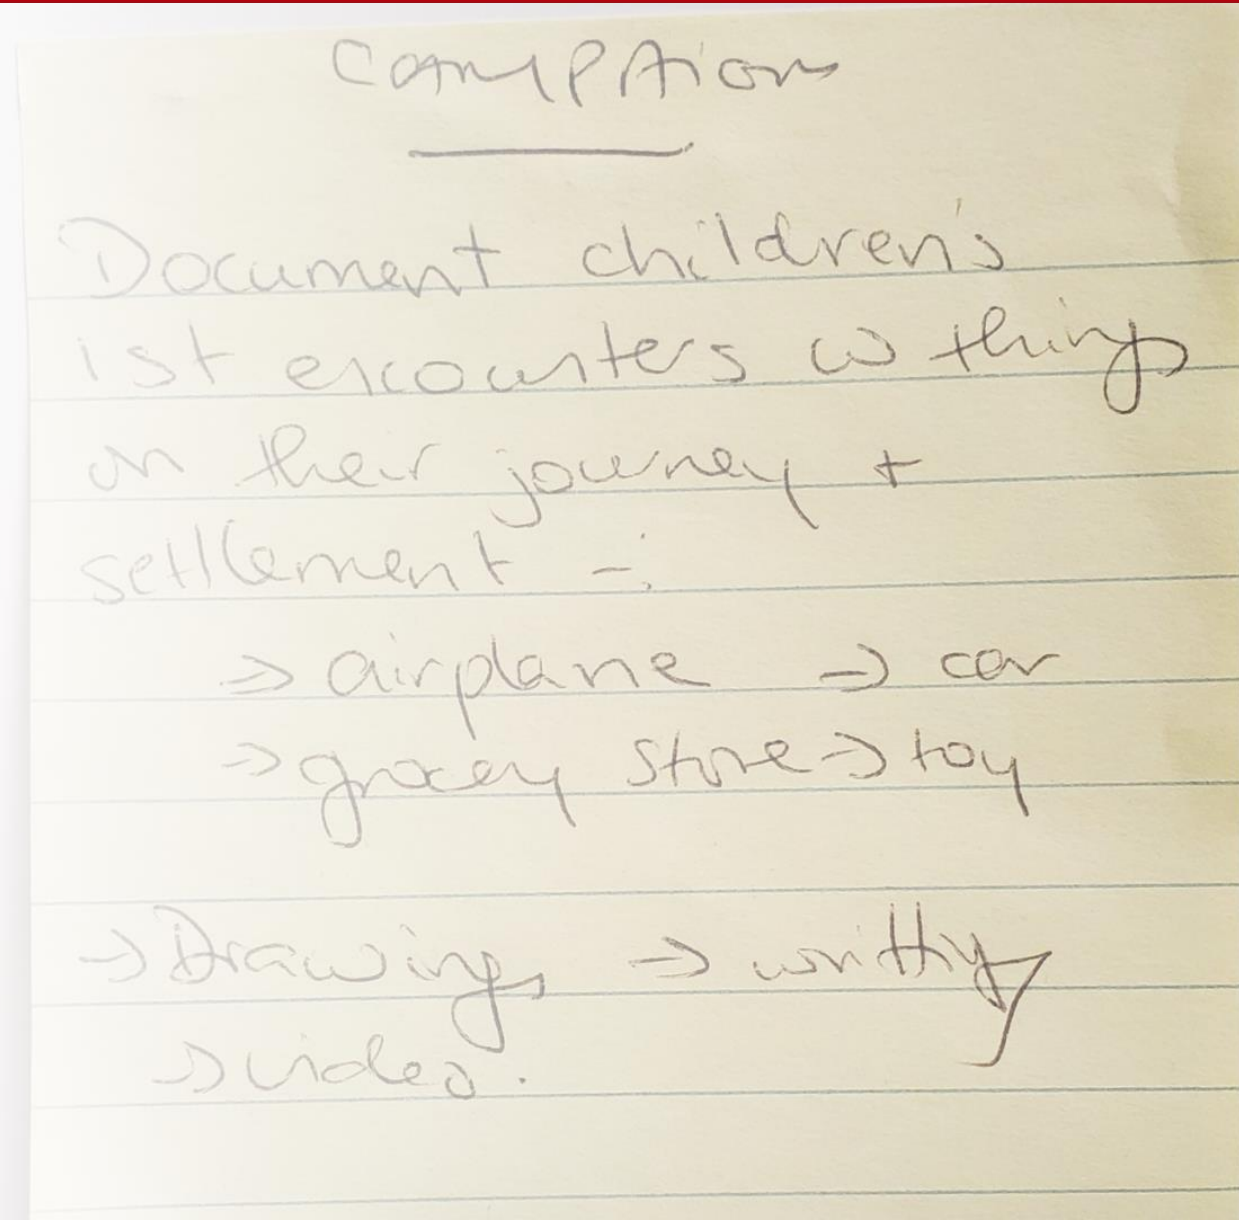 Campaign
Document children's
1st encounters w things
on their journey +
settlement -:
→ airplane → car
→ grocery store → toy
→ Drawings → writting
→ video.